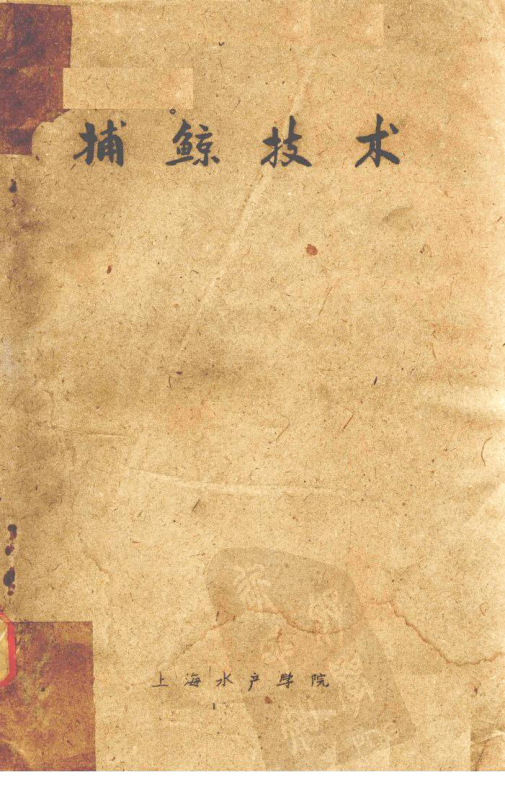 捕鲸技术
上海水产学院